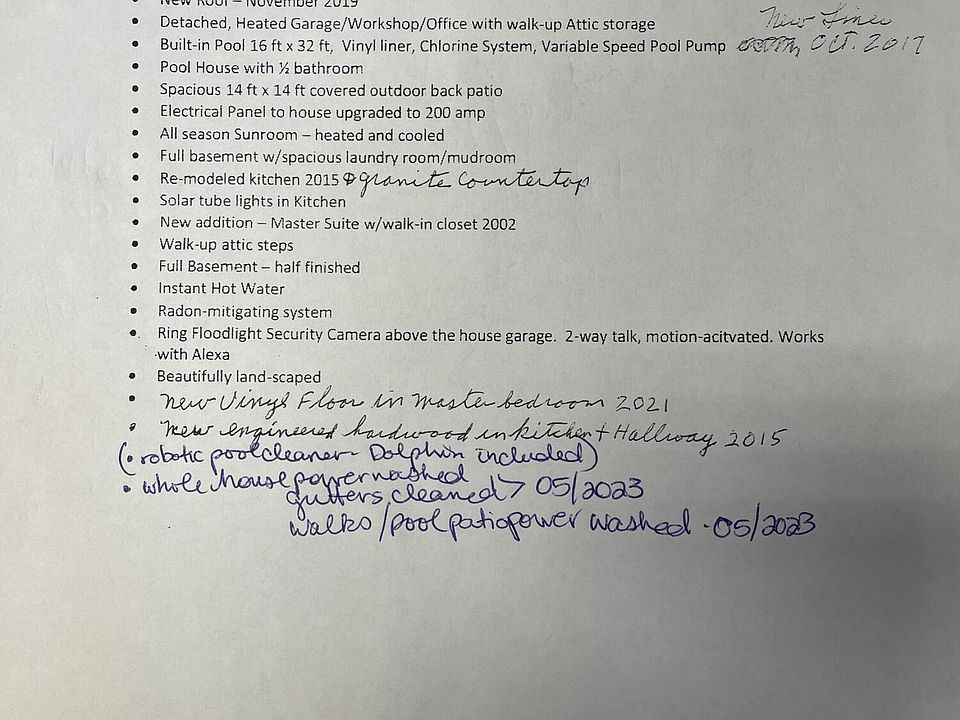 • New Roof – November 2019
• Detached, Heated Garage/Workshop/Office with walk-up Attic storage
New Liner
• Built-in Pool 16 ft x 32 ft, Vinyl liner, Chlorine System, Variable Speed Pool Pump OCT. 2017
• Pool House with ½ bathroom
• Spacious 14 ft x 14 ft covered outdoor back patio
• Electrical Panel to house upgraded to 200 amp
• All season Sunroom – heated and cooled
• Full basement w/spacious laundry room/mudroom
• Re-modeled kitchen 2015 granite Countertop
• Solar tube lights in Kitchen
• New addition – Master Suite w/walk-in closet 2002
• Walk-up attic steps
• Full Basement – half finished
• Instant Hot Water
• Radon-mitigating system
• Ring Floodlight Security Camera above the house garage. 2-way talk, motion-acitvated. Works
with Alexa
• Beautifully land-scaped
• New Vinyl Floor in Master bedroom 2021
• New engineered hardwood in kitchen + Hallway 2015
(• robotic pool cleaner - Dolphin included)
• whole house power washed
gutters cleaned > 05/2023
walks/pool patio power washed - 05/2023